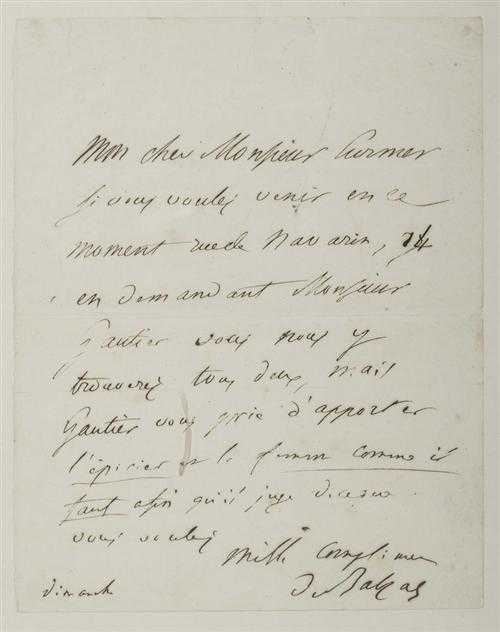 Mon cher Monsieur Curmer
si vous voulez venir en ce
moment rue de Navarin, 14
en demandant Monsieur
Gautier vous nous y
trouverez tous deux, mais
Gautier vous prie d'apporter
l'épicier et la femme comme il
faut afin qu'il juge de ce que
vous voulez
mille complimens
de Balzac
dimanche